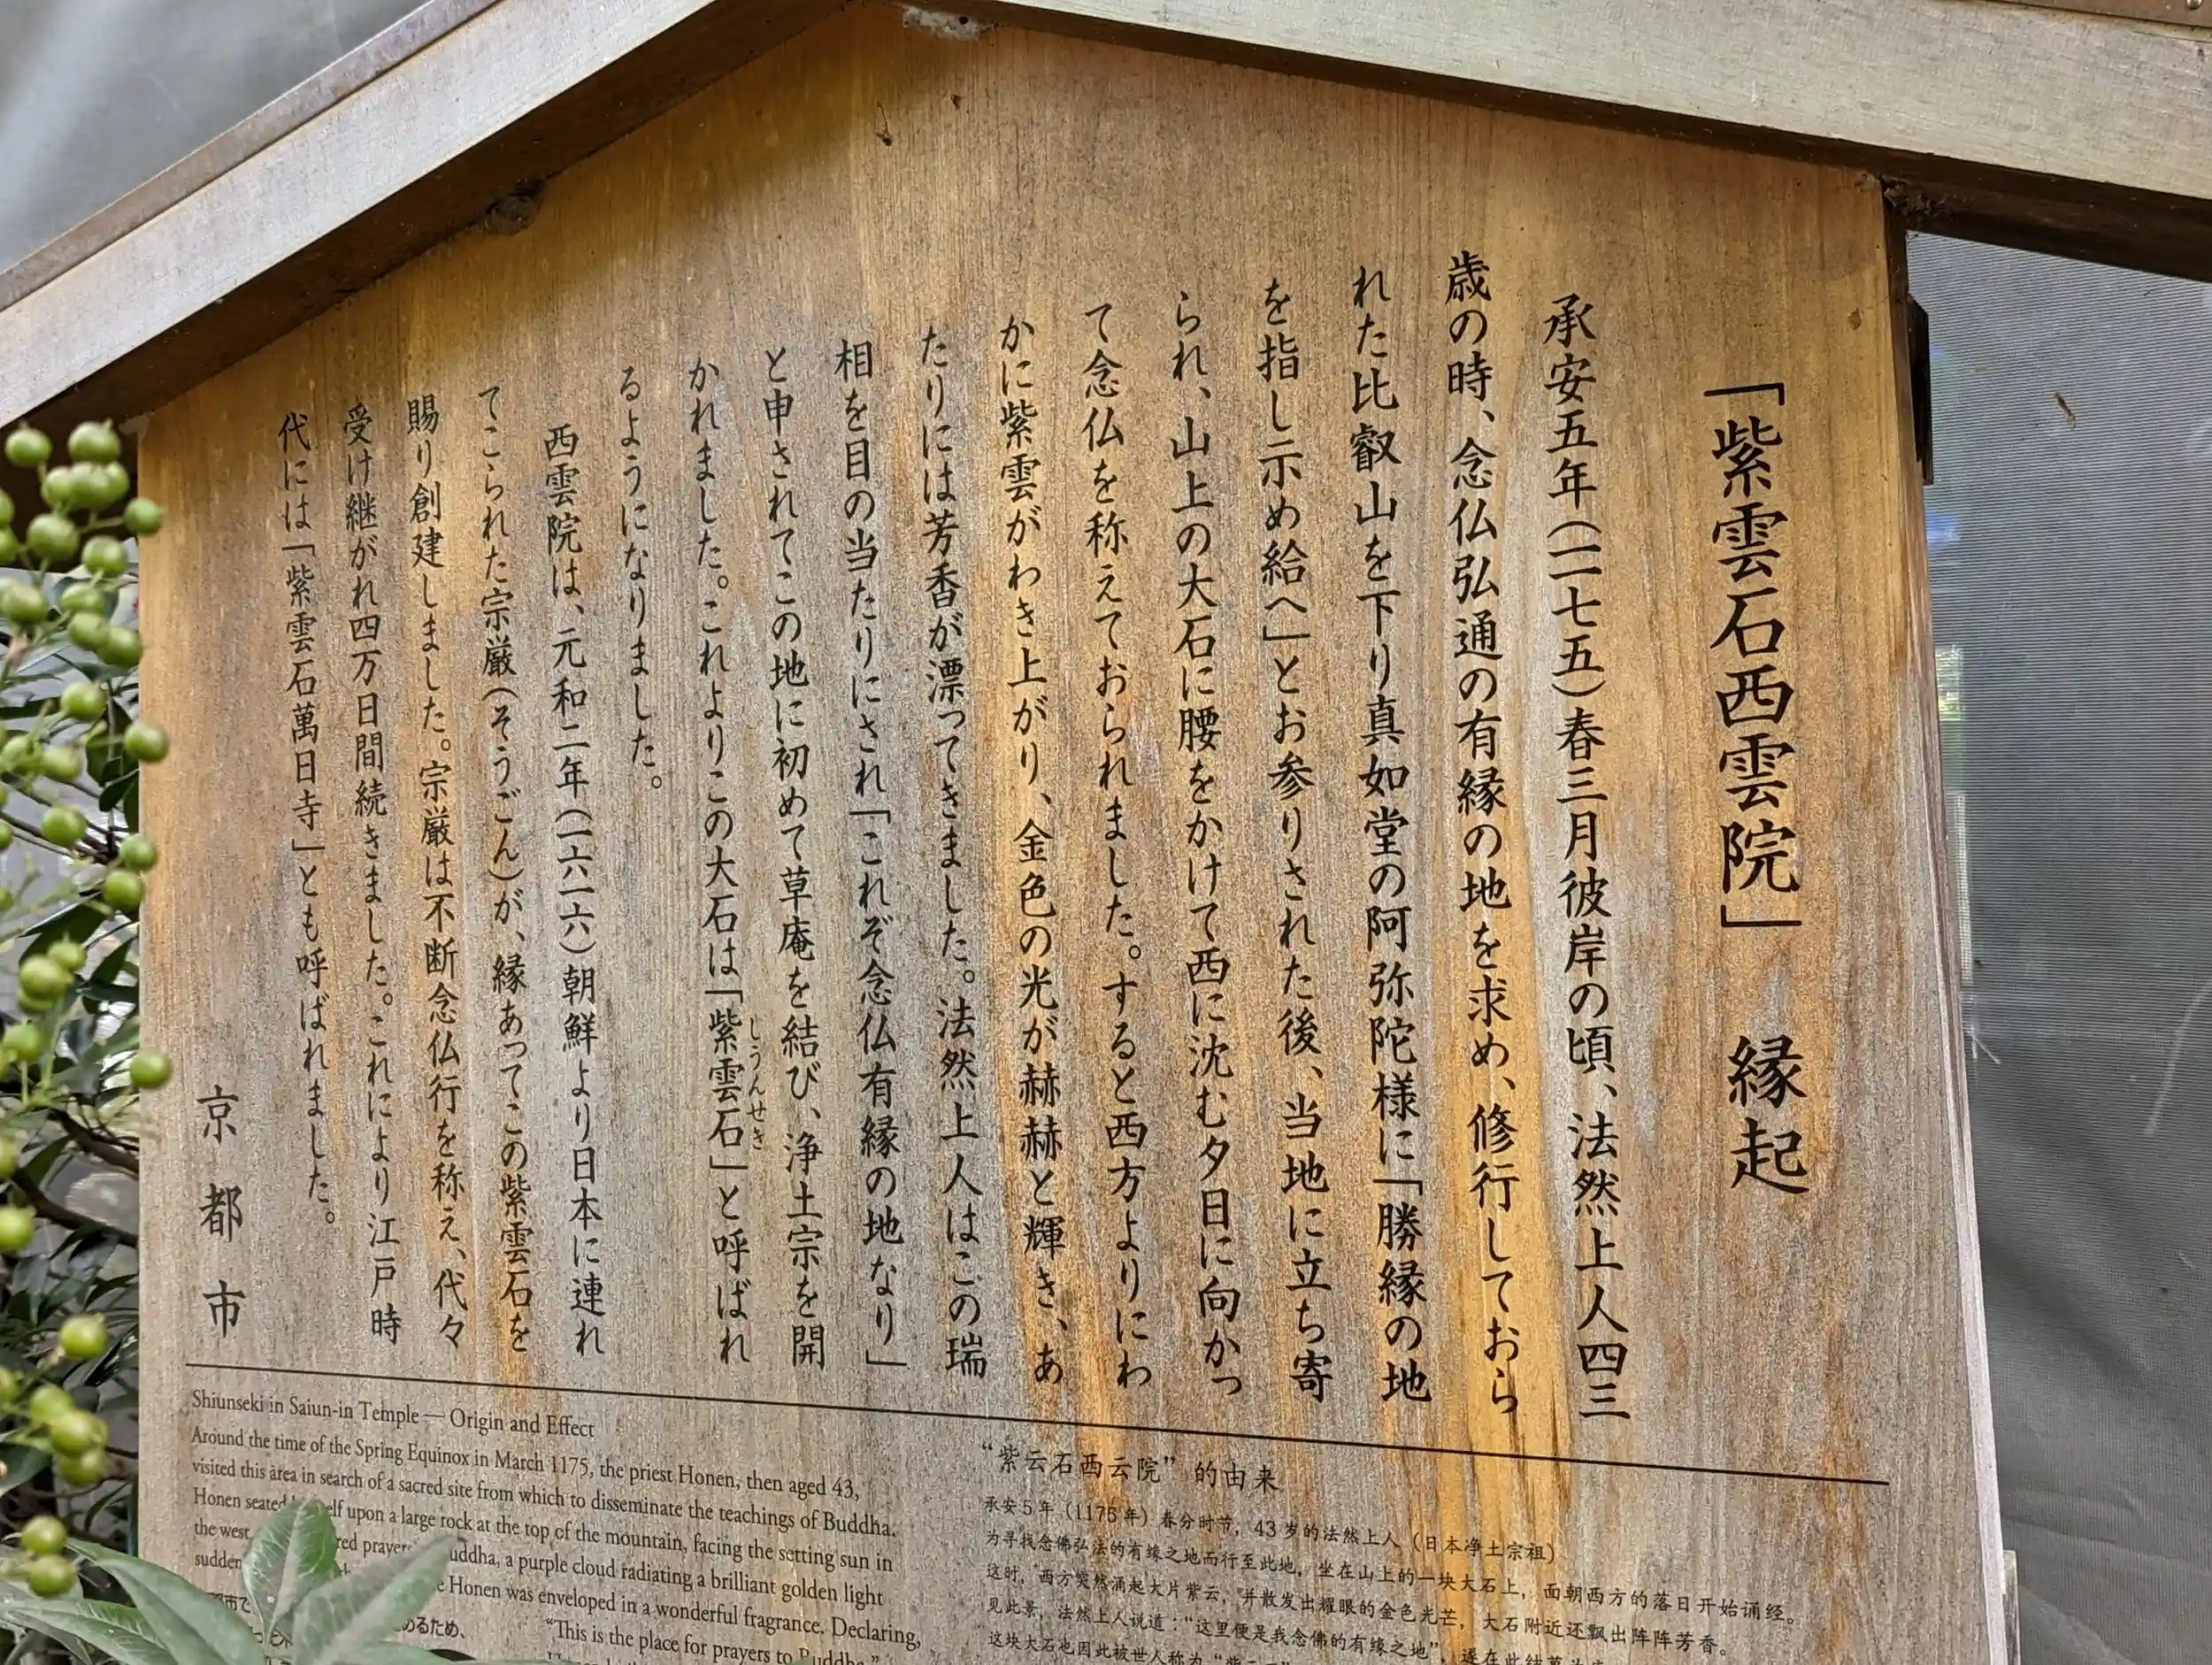 「紫雲石西雲院」 縁起
承安五年(一一七五)春三月彼岸の頃、法然上人四三
歳の時、念仏弘通の有縁の地を求め、修行しておら
れた比叡山を下り真如堂の阿弥陀様に「勝縁の地
を指し示め給へ」とお参りされた後、当地に立ち寄
られ、山上の大石に腰をかけて西に沈む夕日に向かっ
て念仏を称えておられました。すると西方よりにわ
かに紫雲がわき上がり、金色の光が赫赫と輝き、あ
たりには芳香が漂ってきました。法然上人はこの瑞
相を目の当たりにされ「これぞ念仏有縁の地なり」
と申されてこの地に初めて草庵を結び、浄土宗を開
かれました。これよりこの大石は「紫雲石」と呼ばれ
しうんせき
るようになりました。
西雲院は、元和二年(一六一六)朝鮮より日本に連れ
てこられた宗厳(そうごん)が、縁あってこの紫雲石を
賜り創建しました。宗厳は不断念仏行を称え、代々
受け継がれ四万日間続きました。これにより江戸時
代には「紫雲石萬日寺」とも呼ばれました。
京都市
Shiunseki in Saiun-in Temple — Origin and Effect
Around the time of the Spring Equinox in March 1175, the priest Honen, then aged 43,
visited this area in search of a sacred site from which to disseminate the teachings of Buddha.
Honen seated upon a large rock at the top of the mountain, facing the setting sun in
the west. Buddha, a purple cloud radiating a brilliant golden light
Honen was enveloped in a wonderful fragrance. Declaring,
"This is the place for prayers to Buddha."
るため、
“紫云石西云院”的由来
承安5年（1175年）春分时节，43岁的法然上人（日本净土宗祖）
为寻找念佛弘法的有缘之地而行至此地，坐在山上的一块大石上，面朝西方的落日开始诵经。
这时，西方突然涌起大片紫云，并散发出耀眼的金色光芒，大石附近还飘出阵阵芳香。
见此景，法然上人说道：“这里便是我念佛的有缘之地”，遂在此结
这块大石也因此被世人称为“紫云